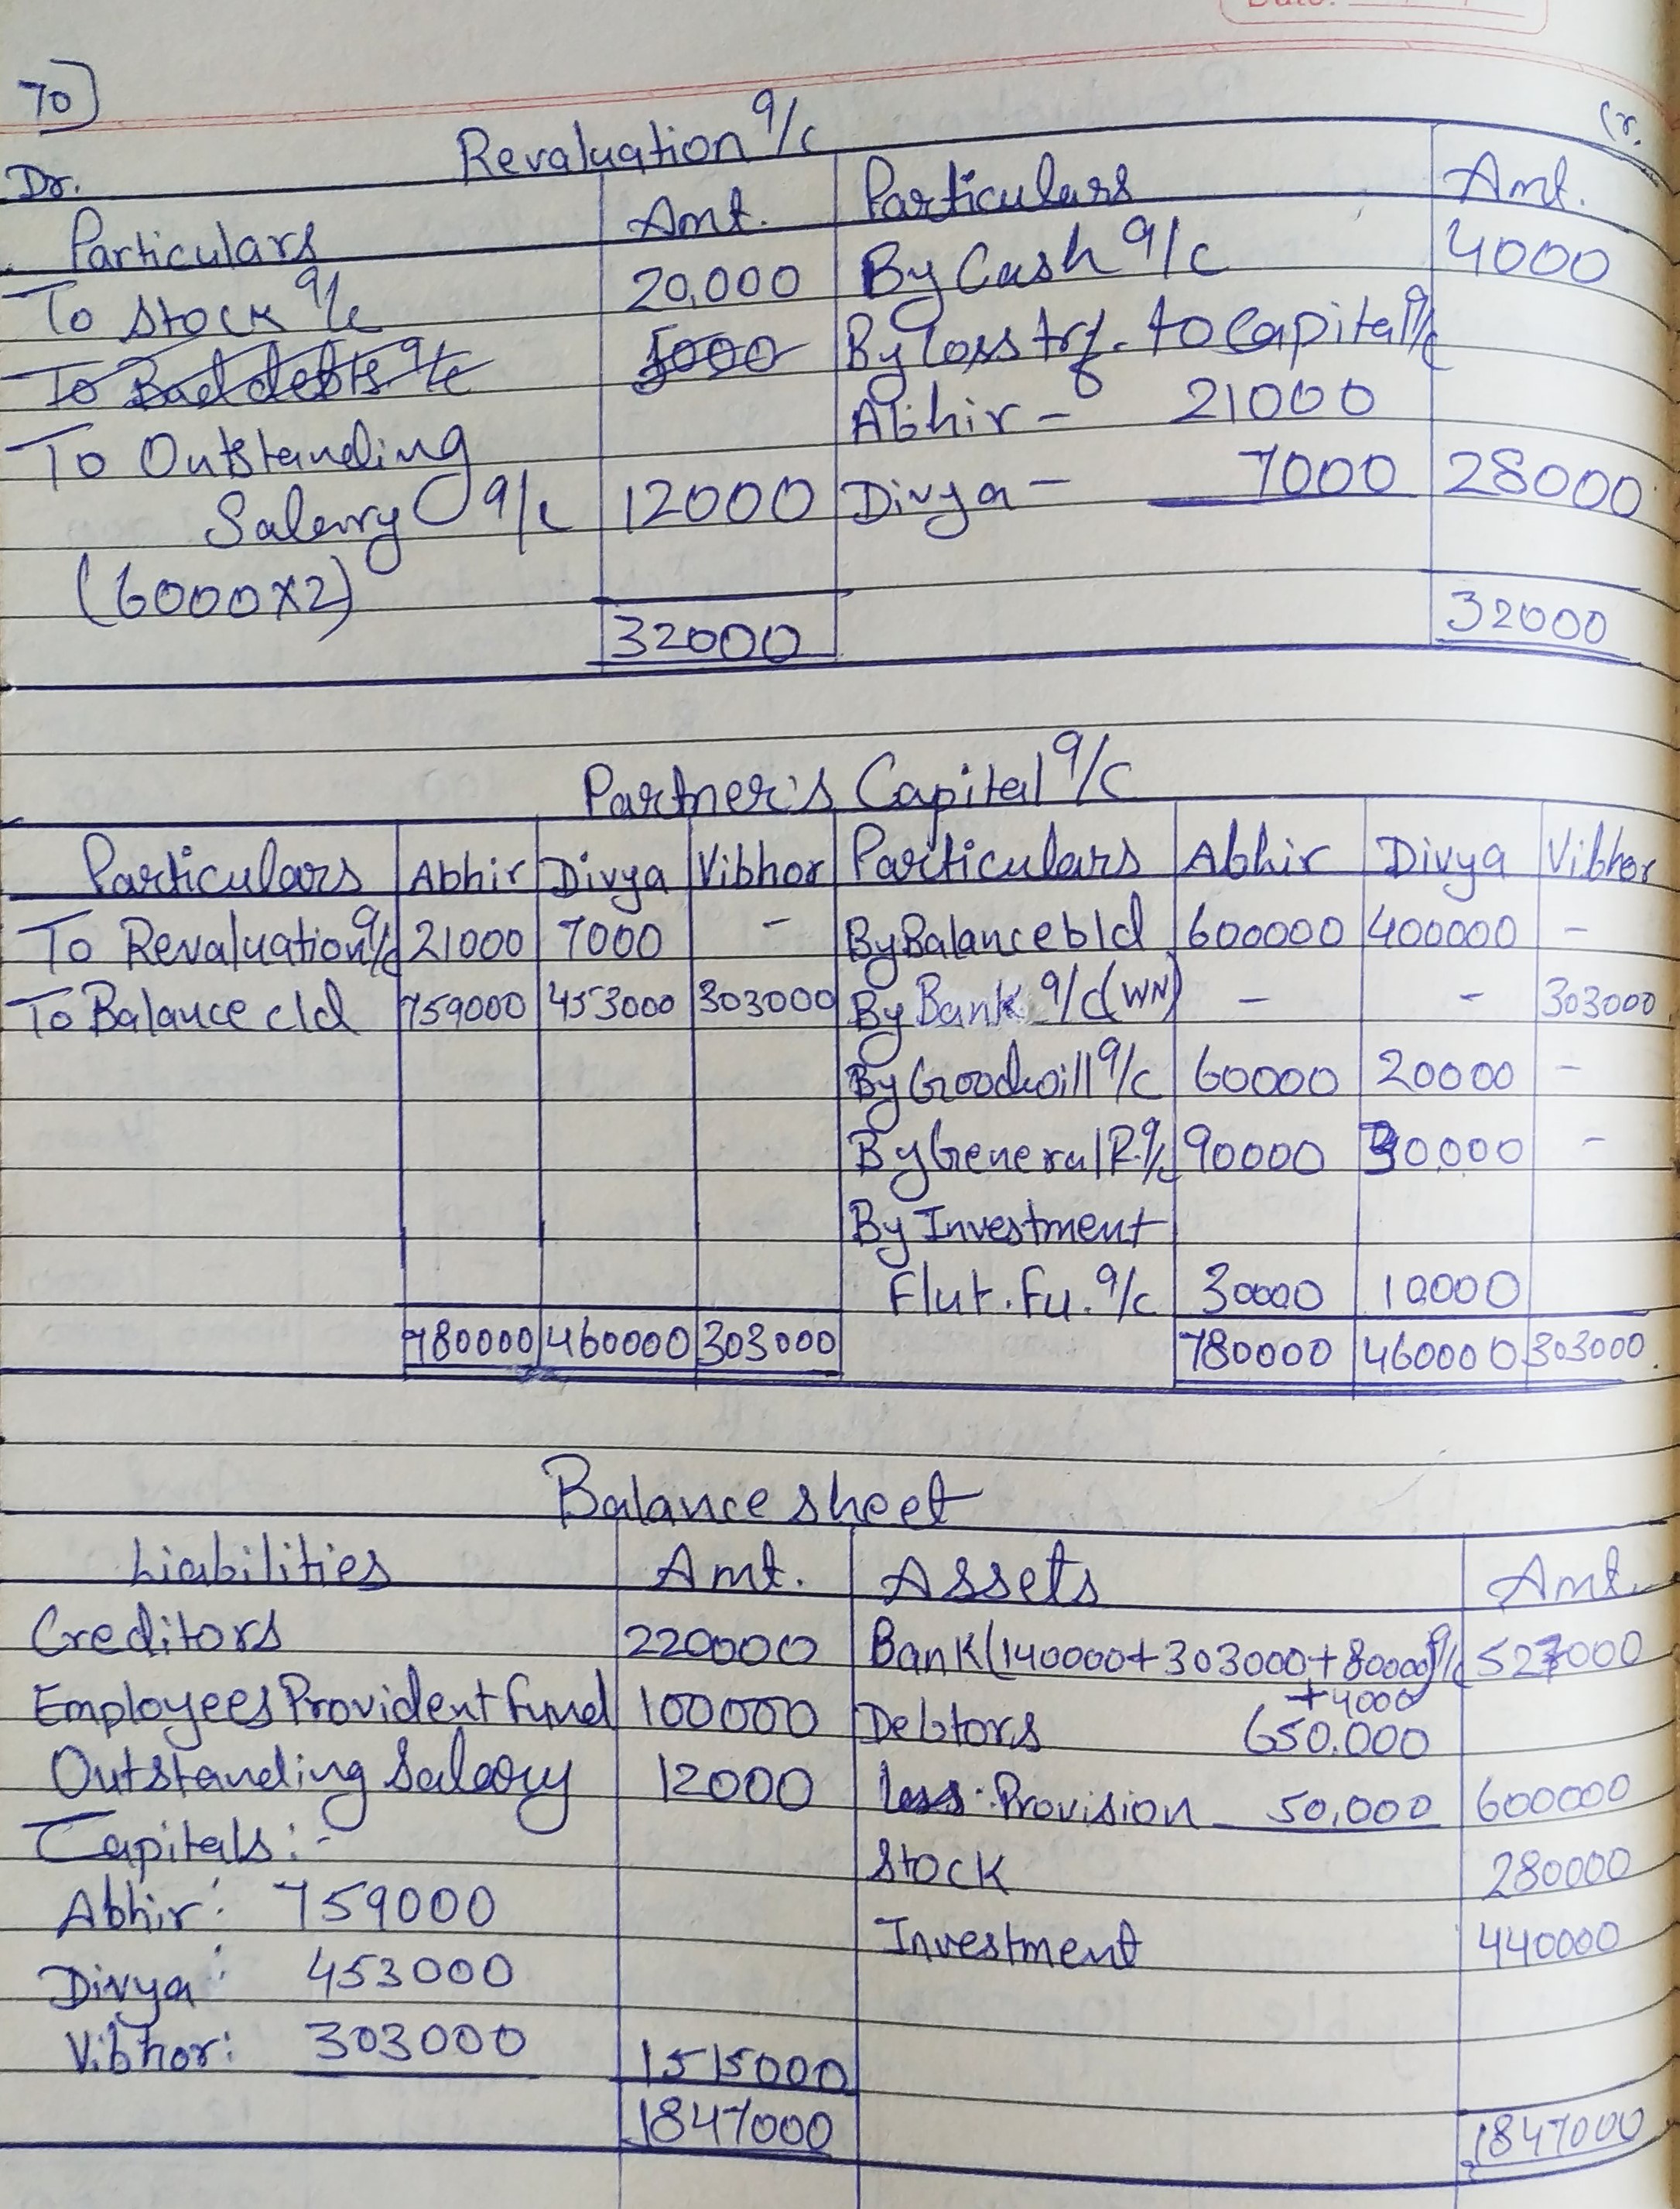 Date:
70)
Revaluation a/c
Dr. Cr.
Particulars Amt. Particulars Amt.
To Stock a/c 20,000 By Cash a/c 4000
To Bad debts a/c 5000 By loss trf. to Capital a/c
Abhir - 21000
To Outstanding
Salary a/c 12000 Divya - 7000 28000
(6000x2)
32000 32000
Partner's Capital a/c
Particulars Abhir Divya Vibhor Particulars Abhir Divya Vibhor
To Revaluation a/c 21000 7000 - By Balance b/d 600000 400000 -
To Balance c/d 759000 453000 303000 By Bank a/c (WN) - - 303000
By Goodwill a/c 60000 20000 -
By General R. a/c 90000 30,000 -
By Investment
Flut. Fu. a/c 30000 10000
780000 460000 303000 780000 460000 303000
Balance sheet
Liabilities Amt. Assets Amt.
Creditors 220000 Bank (140000+303000+80000) a/c 527000
+4000
Employees Provident fund 100000 Debtors 650.000
Outstanding Salary 12000 less: Provision 50,000 600000
Capitals:-
Stock 280000
Abhir: 759000
Investment 440000
Divya: 453000
Vibhor: 303000 1515000
1847000 1847000